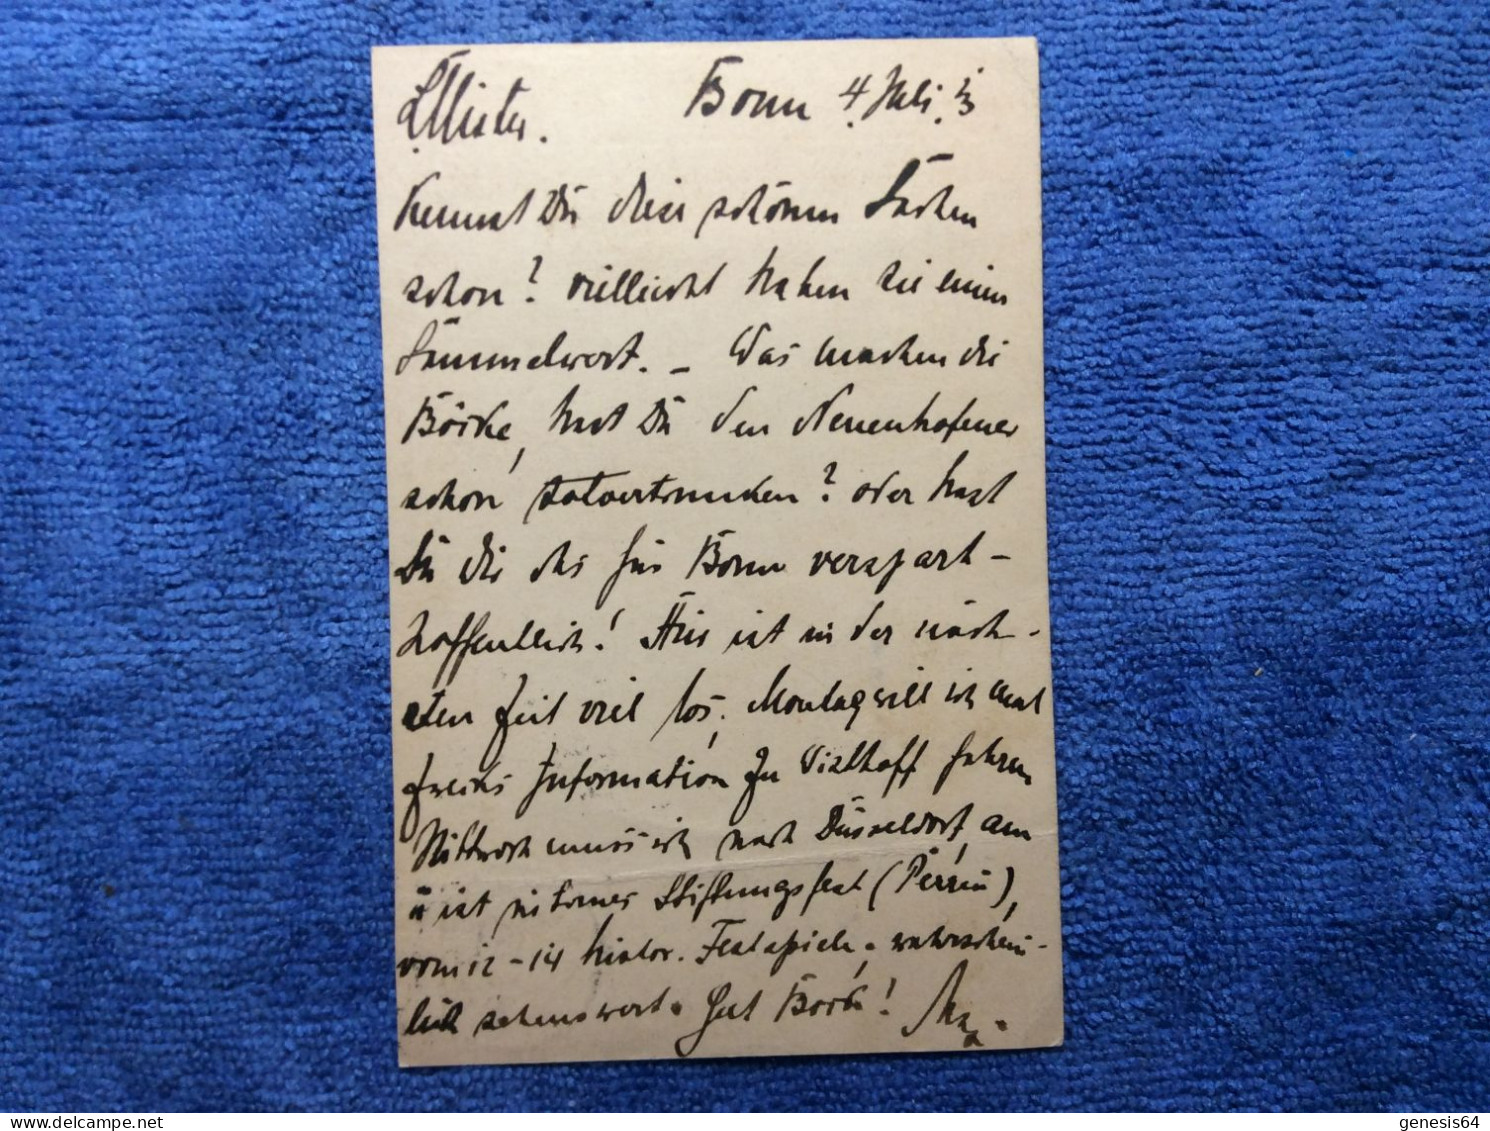 Bonn 4. Juli
Kennst Dü diese schönen Sachen
schon? vielleicht haben sie einen
Sammelwert. – Was machen die
Böcke, hast Dü den Neuenhofener
schon totvertrunken? oder hast
Dü die das für Bonn verspart –
hoffentlich! Hier ist in der näch-
sten Zeit viel los. Montag will ich mal
zwecks Information zu Vielhoff fahren
Mittwoch muss ich nach Düsseldorf, am
ist internes Stiftungsfest (Perrin),
vom 12 – 14 histor. Festspiele. wahrschein-
lich sehenswert. Gut Bock!
genesis64
www.delcampe.net